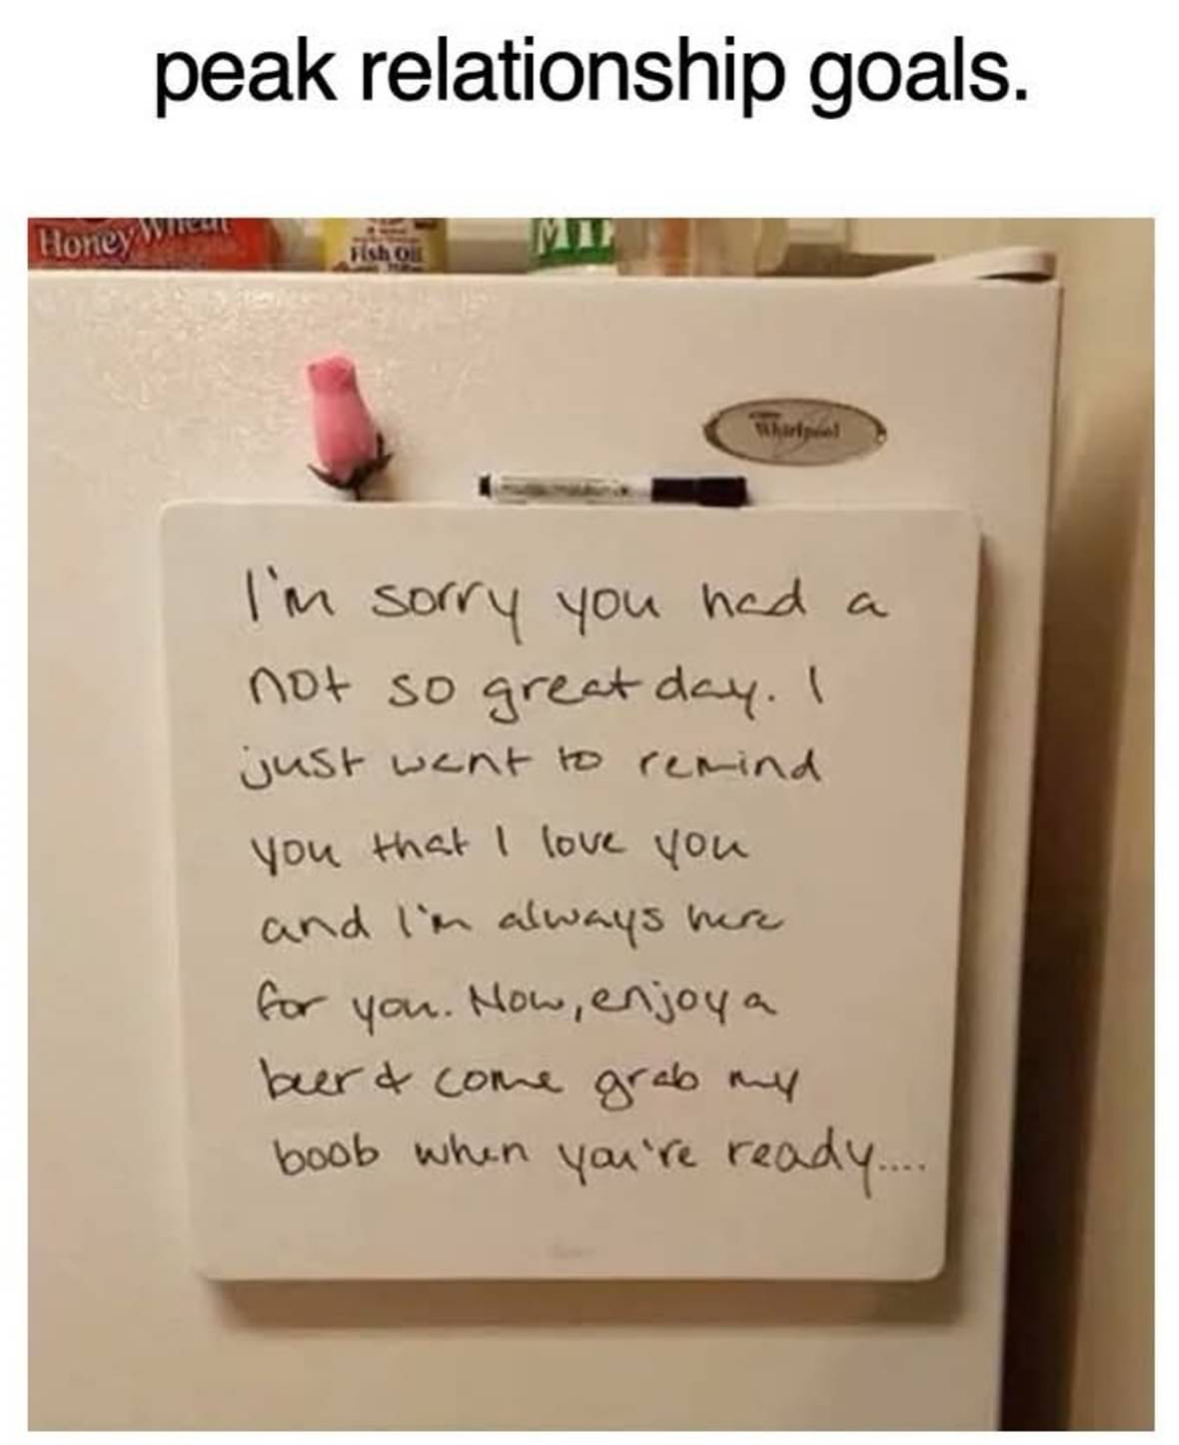 peak relationship goals.
Honey Wheat
Fish Oil
Whirlpool
I'm sorry you had a
not so great day. I
just want to remind
you that I love you
and I'm always here
for you. Now, enjoy a
beer & come grab my
boob when you're ready....